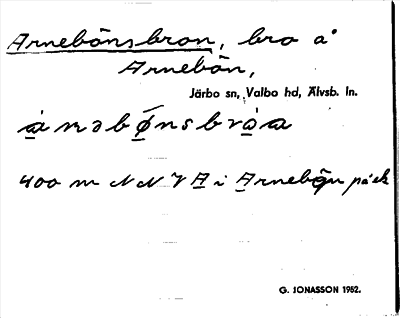 Arnebönsbron, bro å
Arnebön,
Järbo sn, Valbo hd, Älvsb. ln.
à nəbǿnsbròa
400 m N N V A i Arnebön på ek
G. JONASSON 1982.